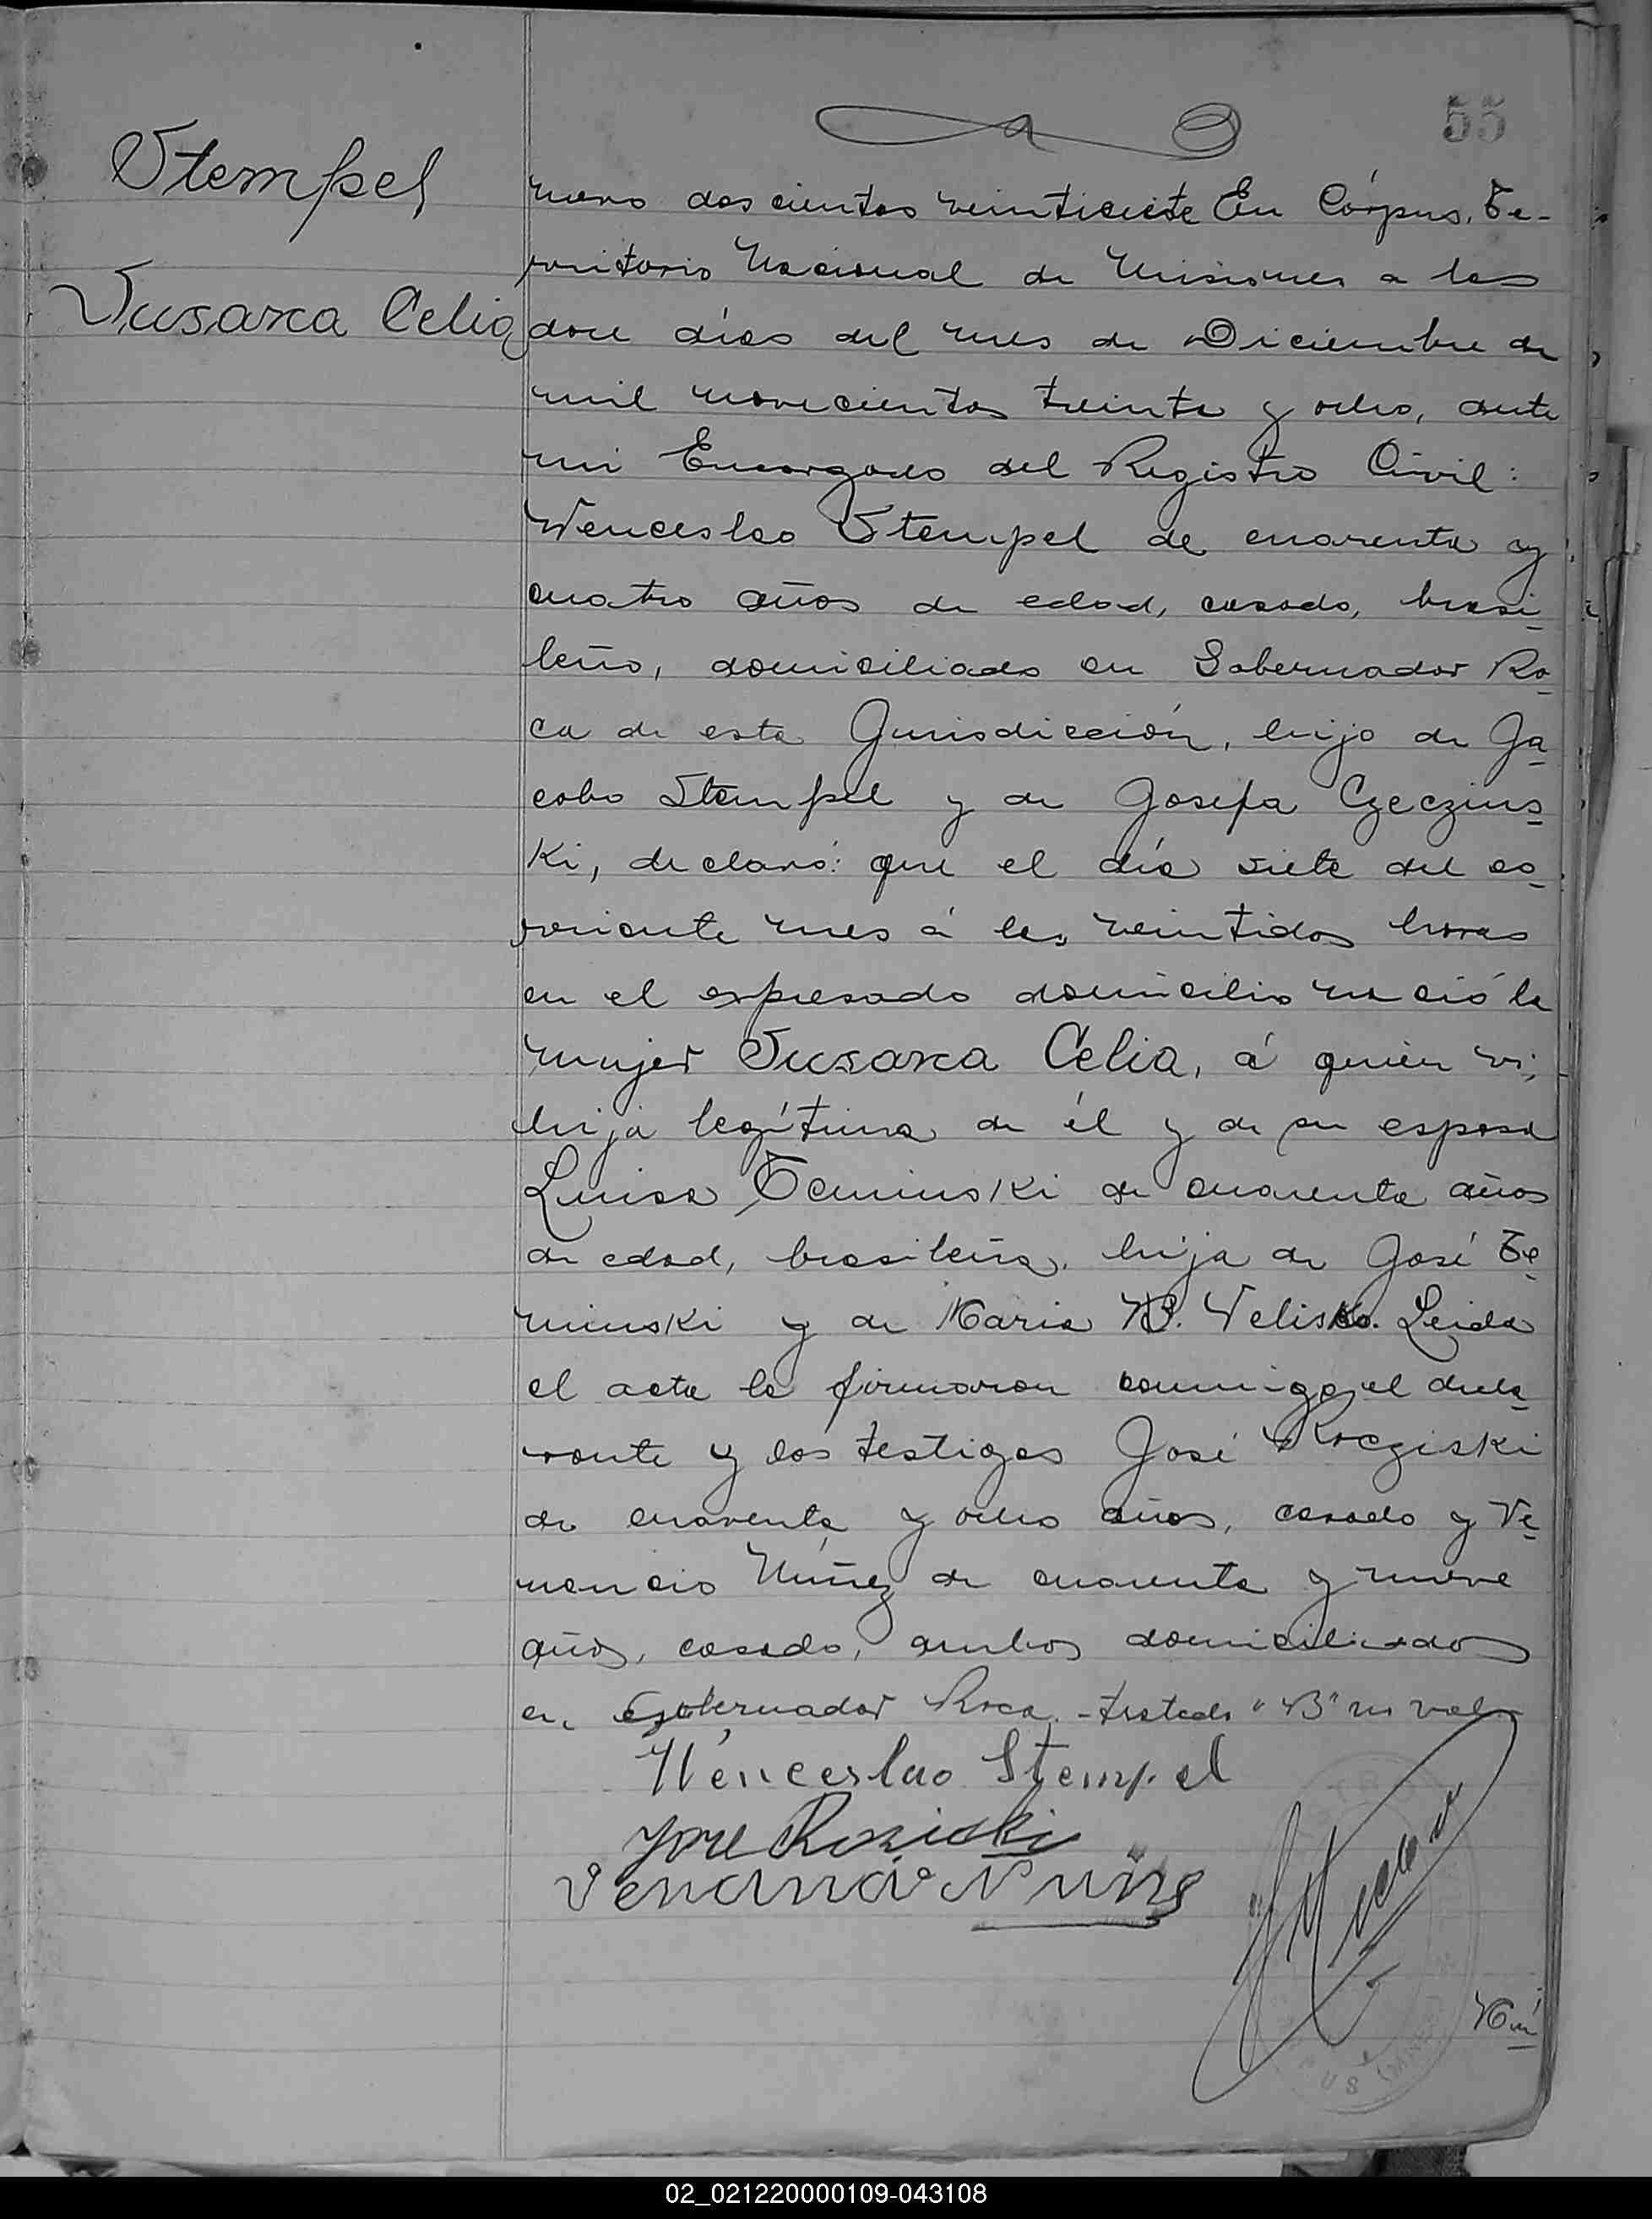 55
Stempel
Susana Celia
mero doscientos veintisiete En Córpus, Te-
rritorio Nacional de Misiones a los
doce días del mes de Diciembre de
mil novecientos treinta y ocho, ante
mi Encargado del Registro Civil:
Wenceslao Stempel de cuarenta y
cuatro años de edad, casado, brasi-
leño, domiciliado en Gobernador Ro-
ca de esta Jurisdicción, hijo de Ja-
cobo Stempel y de Josefa Czeczins-
Ki, declaró: que el día siete del co-
rriente mes á las veintidos horas
en el expresado domicilio nació la
mujer Susana Celia, á quien vi,
hija legítima de él y de su esposa
Luisa Teminski de cuarenta años
de edad, brasileña, hija de José Te-
minski y de Maria B. Velisko. Leida
el acta la firmaron conmigo, el decla-
rante y los testigos José Rocziski
de cuarenta y ocho años, casado y Ve-
nancio Núñez de cuarenta y nueve
años, casado, ambos domiciliados
en Gobernador Roca. - testado "B" no vale
Wenceslao Stempel
Jose Roziski
Venancio Nuñes
Nú-
02_021220000109-043108